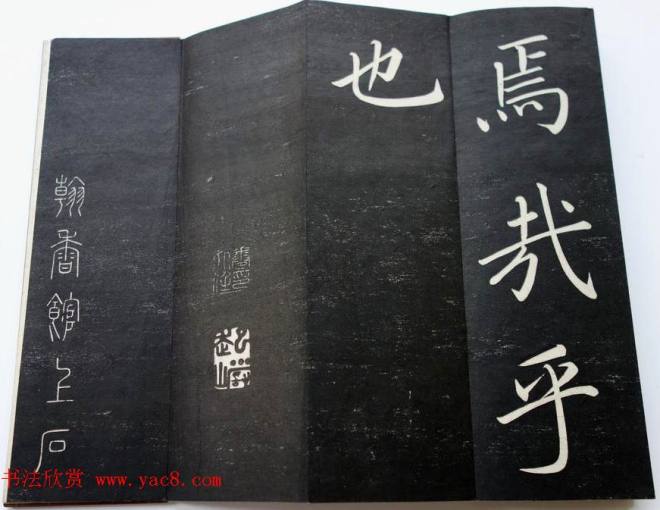 焉哉乎
也
翰香館上石
书法欣赏 www.yac8.com